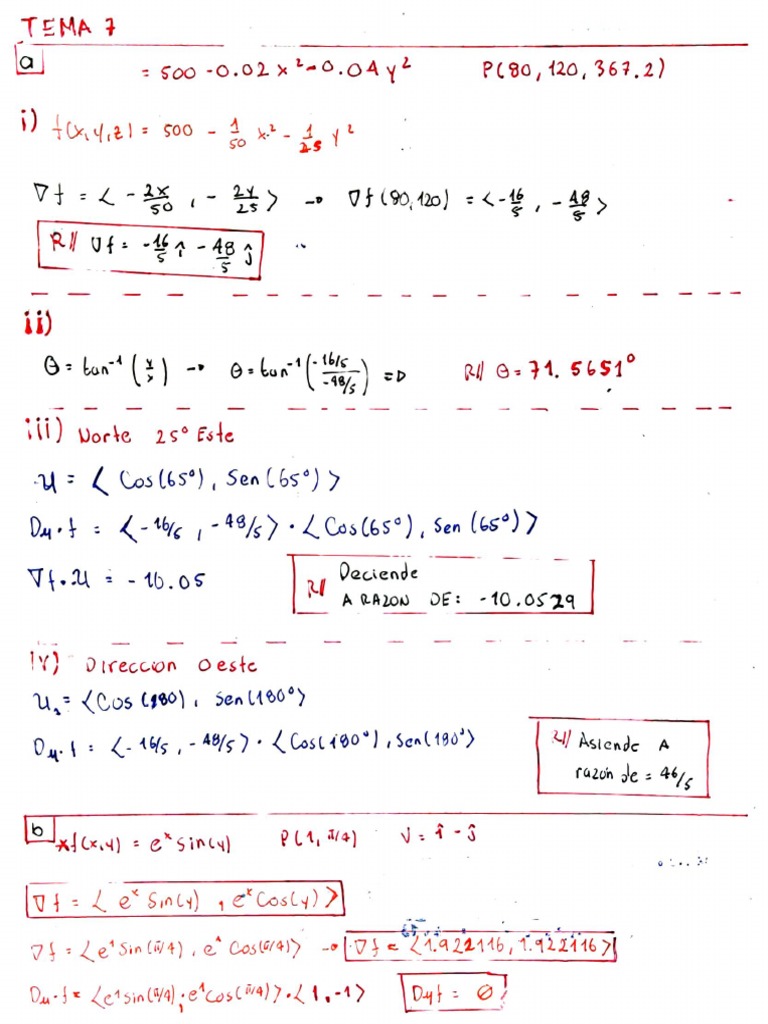 TEMA 7
a
= 500 - 0.02 x² - 0.04 y² P(80, 120, 367.2)
i) f(x, y, z) = 500 - 1/50 x² - 1/25 y²
∇f = < - 2x/50 , - 2y/25 > → ∇f(80, 120) = < - 16/5 , - 48/5 >
R// ∇f = - 16/5 î - 48/5 ĵ
ii)
θ = tan⁻¹ (y/x) → θ = tan⁻¹ (-16/5 / -48/5) => R// θ = 71.5651°
iii) Norte 25° Este
u = < Cos(65°), Sen(65°) >
Du·f = < -16/5 , -48/5 > · < Cos(65°), Sen(65°) >
∇f·u = - 10.05
R// Deciende
A RAZON DE: -10.0529
iv) Direccion Oeste
u₂ = < Cos(180), Sen(180°) >
Du·f = < -16/5 , -48/5 > · < Cos(180°), Sen(180°) >
R// Asiende A
razón de = 46/5
b
*f(x, y) = eˣ Sin(y) P(1, π/4) V = î - ĵ
∇f = < eˣ Sin(y) , eˣ Cos(y) >
∇f = < e¹ Sin(π/4), eˣ Cos(π/4) > → ∇f = < 1.922116, 1.922116 >
Du·f = < e¹ sin(π/4) ; e¹ cos(π/4) > · < 1, -1 > Duf = 0